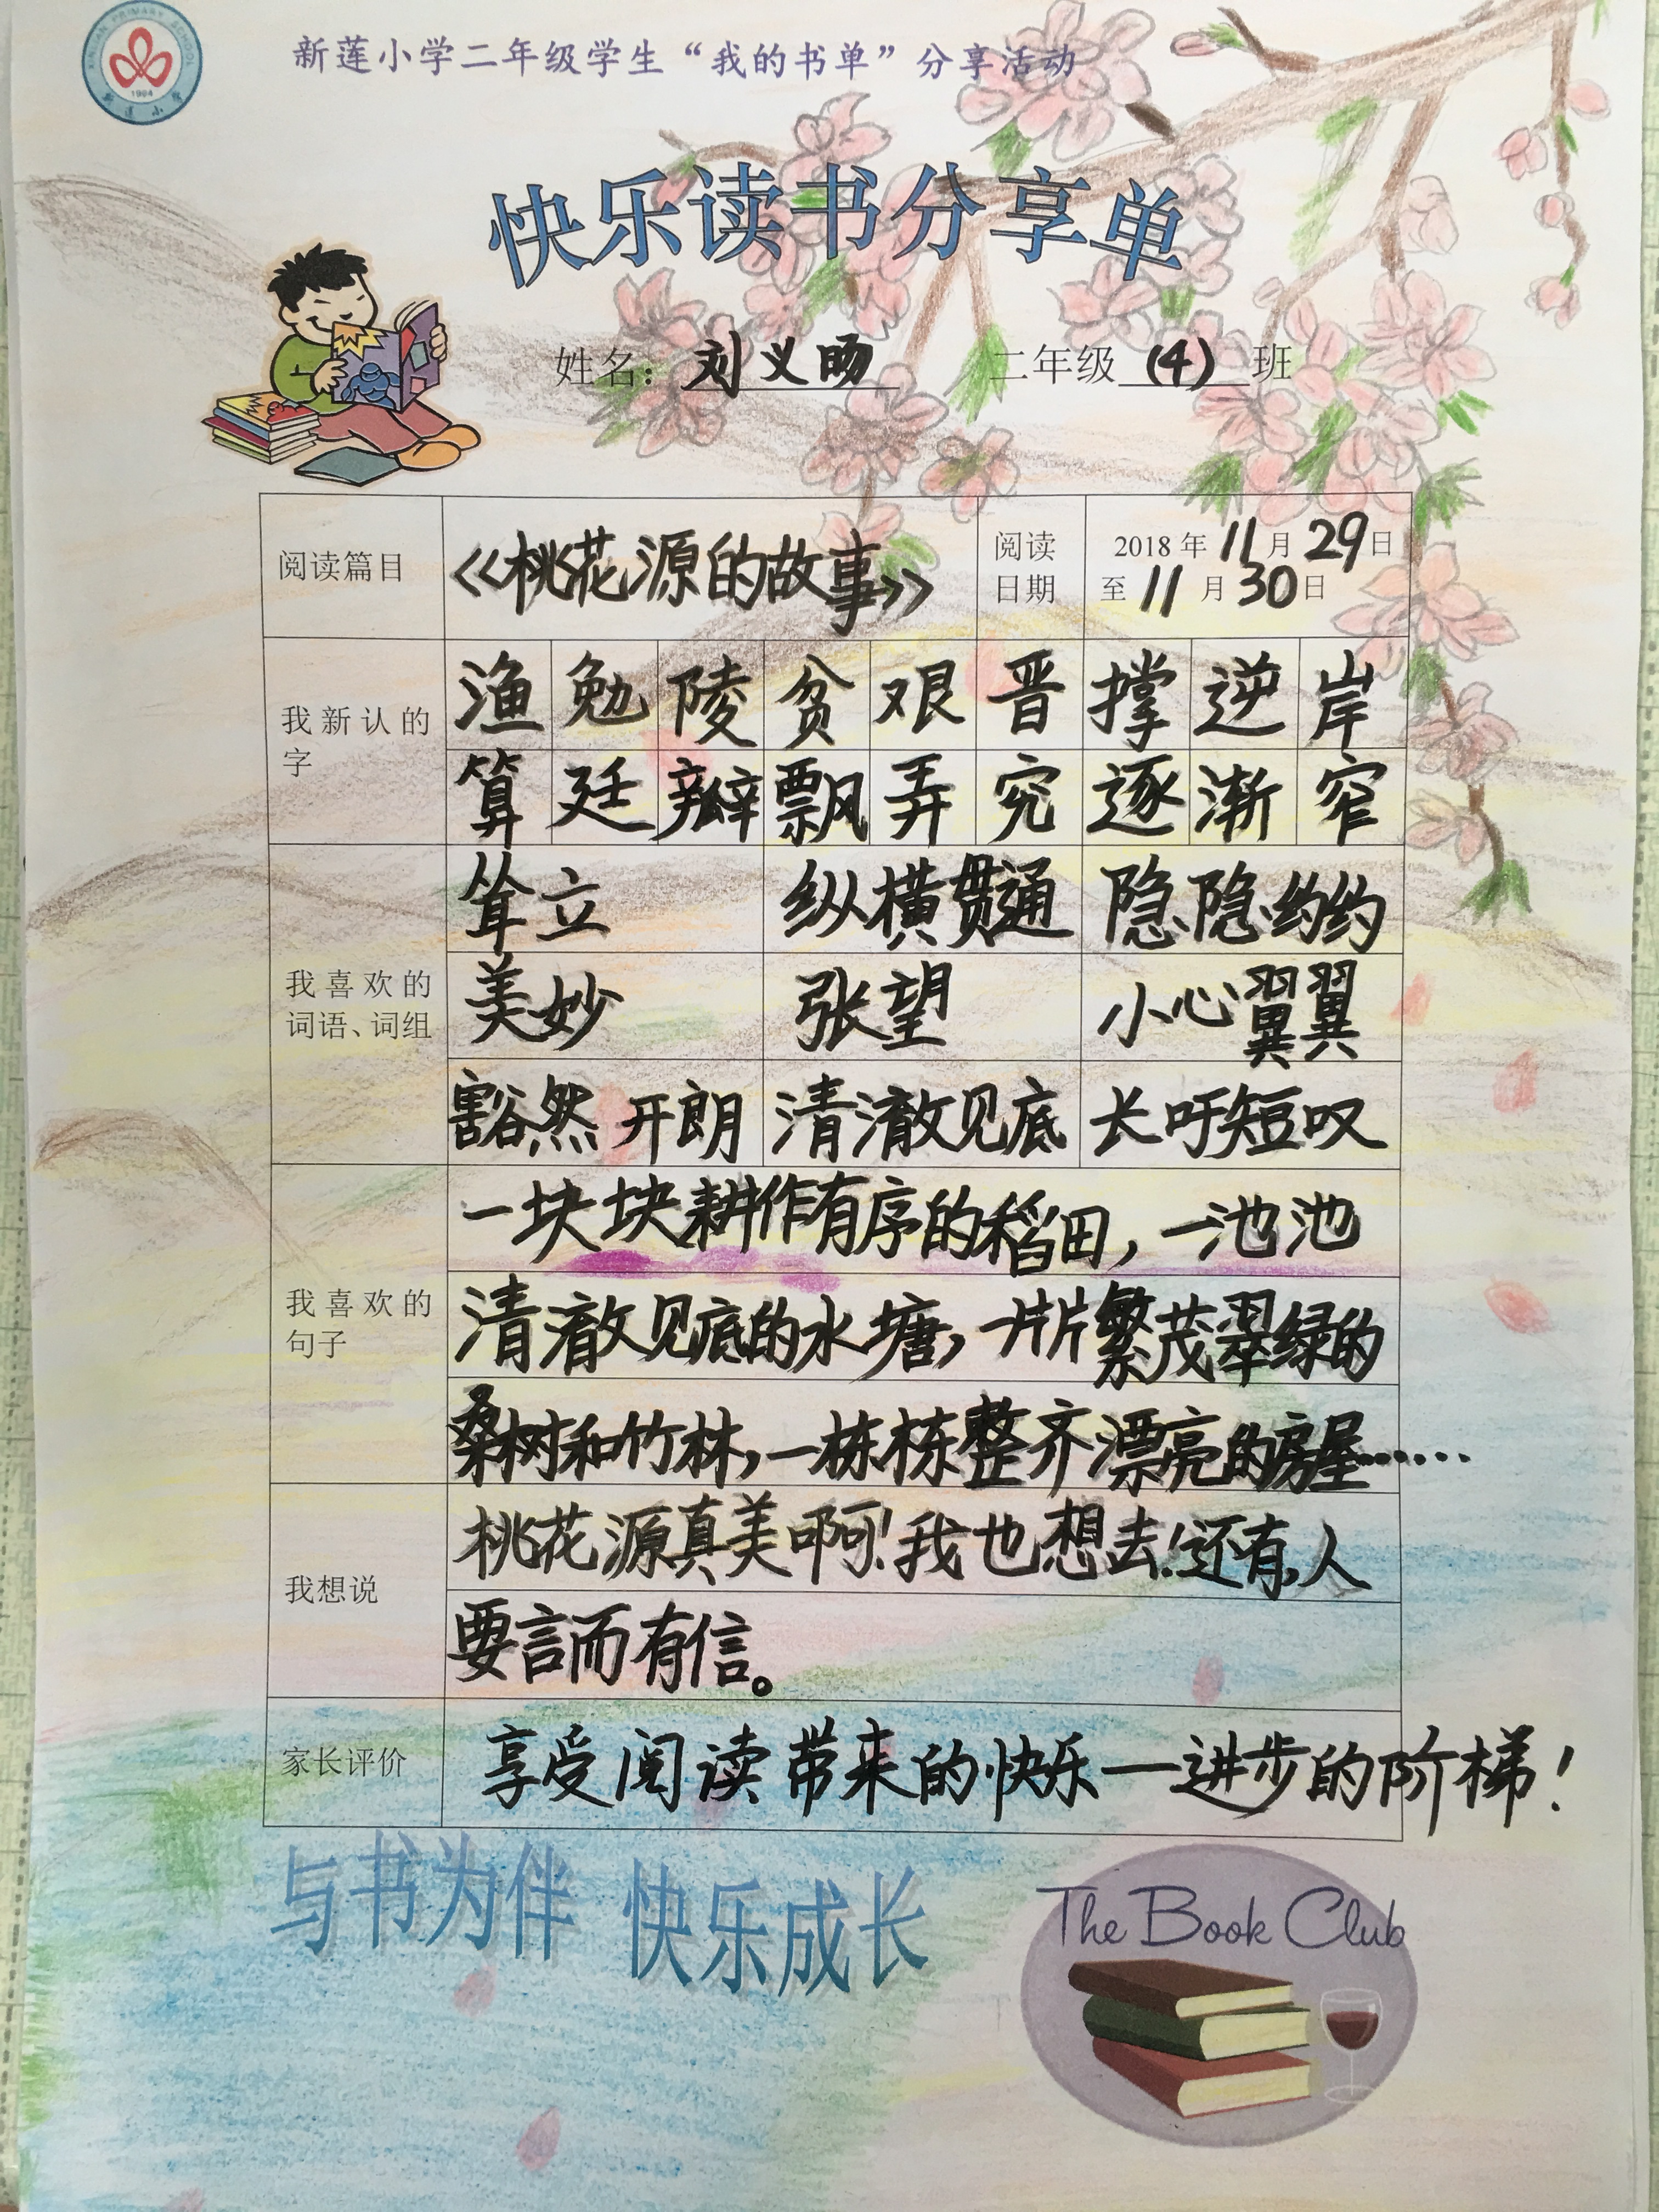 XINLIAN PRIMARY SCHOOL
1994
新莲小学
新莲小学二年级学生“我的书单”分享活动
快乐读书分享单
姓名：刘义旸 二年级（4）班
阅读篇目 《桃花源的故事》 阅读日期 2018年11月29日至11月30日
我新认的字
渔 勉 陵 贫 艰 晋 撑 逆 岸
算 廷 瓣 飘 弄 究 逐 渐 窄
我喜欢的词语、词组
耸立 纵横贯通 隐隐约约
美妙 张望 小心翼翼
豁然开朗 清澈见底 长吁短叹
我喜欢的句子
一块块耕作有序的稻田，一池池
清澈见底的水塘，一片片繁茂翠绿的
桑树和竹林，一栋栋整齐漂亮的房屋……
我想说
桃花源真美啊！我也想去！还有，人
要言而有信。
家长评价 享受阅读带来的快乐—进步的阶梯！
与书为伴 快乐成长
The Book Club